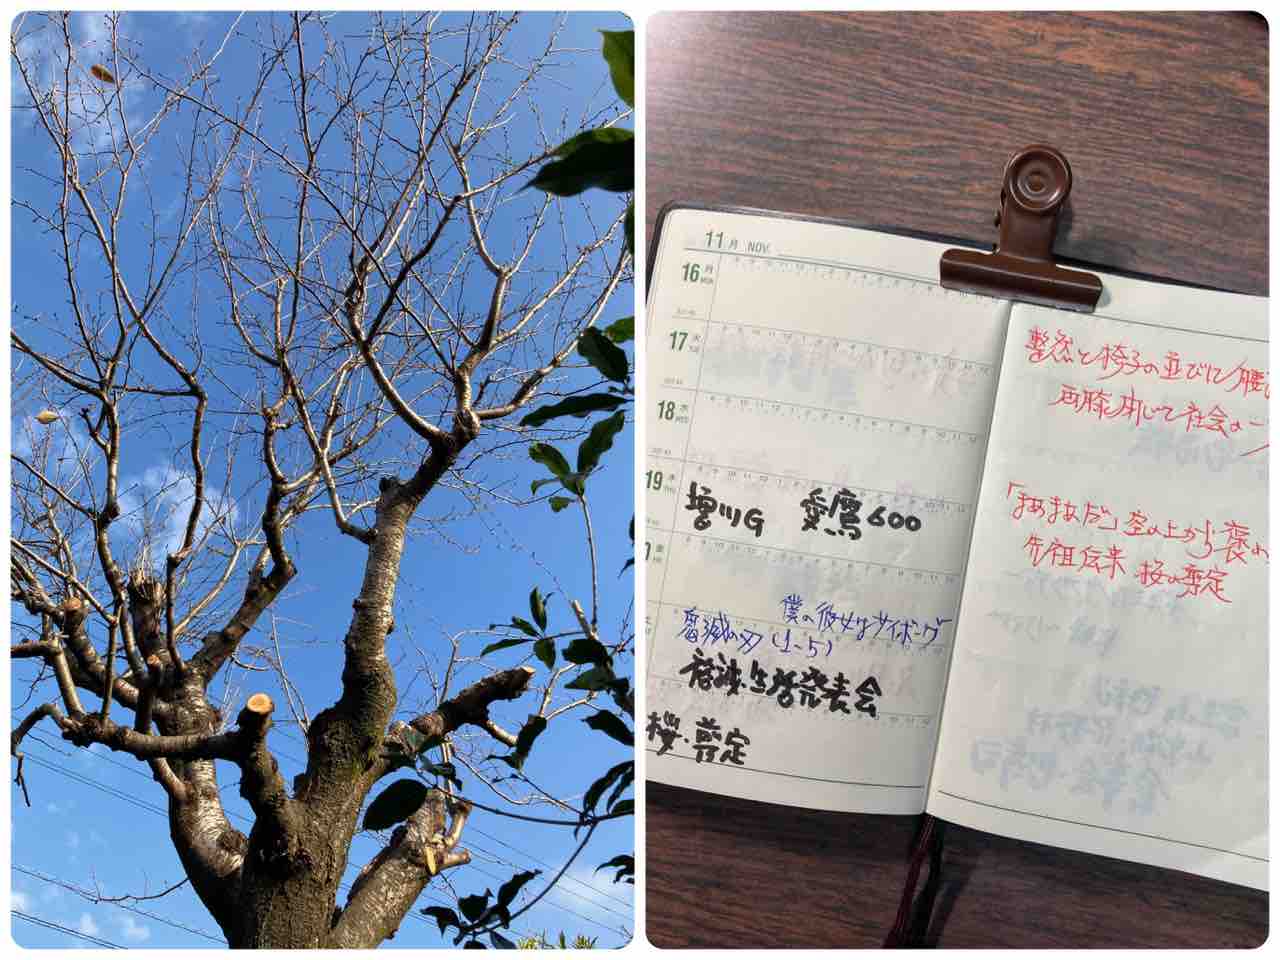 11月 NOV.
16 月 MON
17 火 TUE
18 水 WED
19 木 THU
増川G 愛鷹600
金
僕の彼女はサイボーグ
鬼滅の刃 (1-5)
生活発表会
桜・剪定
整然と椅子の並びに腰
両膝閉じて社会の一
「まあまあだ」空の上から褒め
先祖伝来 桜の剪定